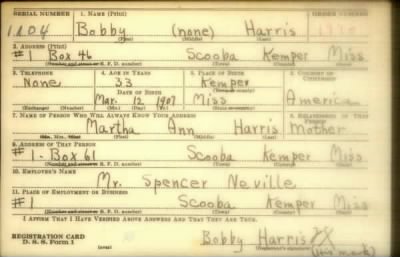 SERIAL NUMBER 1. NAME (Print) ORDER NUMBER
1104 Bobby (none) Harris
(First) (Middle) (Last)
2. ADDRESS (Print)
#1 Box 46 Scooba Kemper Miss
(Number and street or R. F. D. number) (Town) (County) (State)
3. TELEPHONE 4. AGE IN YEARS 5. PLACE OF BIRTH 6. COUNTRY OF CITIZENSHIP
None 33 Kemper
DATE OF BIRTH (Town or county)
Mar. 12 1907 Miss America
(Exchange) (Number) (Mo.) (Day) (Yr.) (State or country)
7. NAME OF PERSON WHO WILL ALWAYS KNOW YOUR ADDRESS 8. RELATIONSHIP OF THAT PERSON
Martha Ann Harris Mother
(Mr., Mrs., Miss) (First) (Middle) (Last)
9. ADDRESS OF THAT PERSON
#1 - Box 61 Scooba Kemper Miss
(Number and street or R. F. D. number) (Town) (County) (State)
10. EMPLOYER'S NAME
Mr. Spencer Neville
11. PLACE OF EMPLOYMENT OR BUSINESS
#1 Scooba Kemper Miss
(Number and street or R. F. D. number) (Town) (County) (State)
I AFFIRM THAT I HAVE VERIFIED ABOVE ANSWERS AND THAT THEY ARE TRUE.
REGISTRATION CARD
D. S. S. Form 1 (over) Bobby Harris X
(Registrant's signature) (his mark)